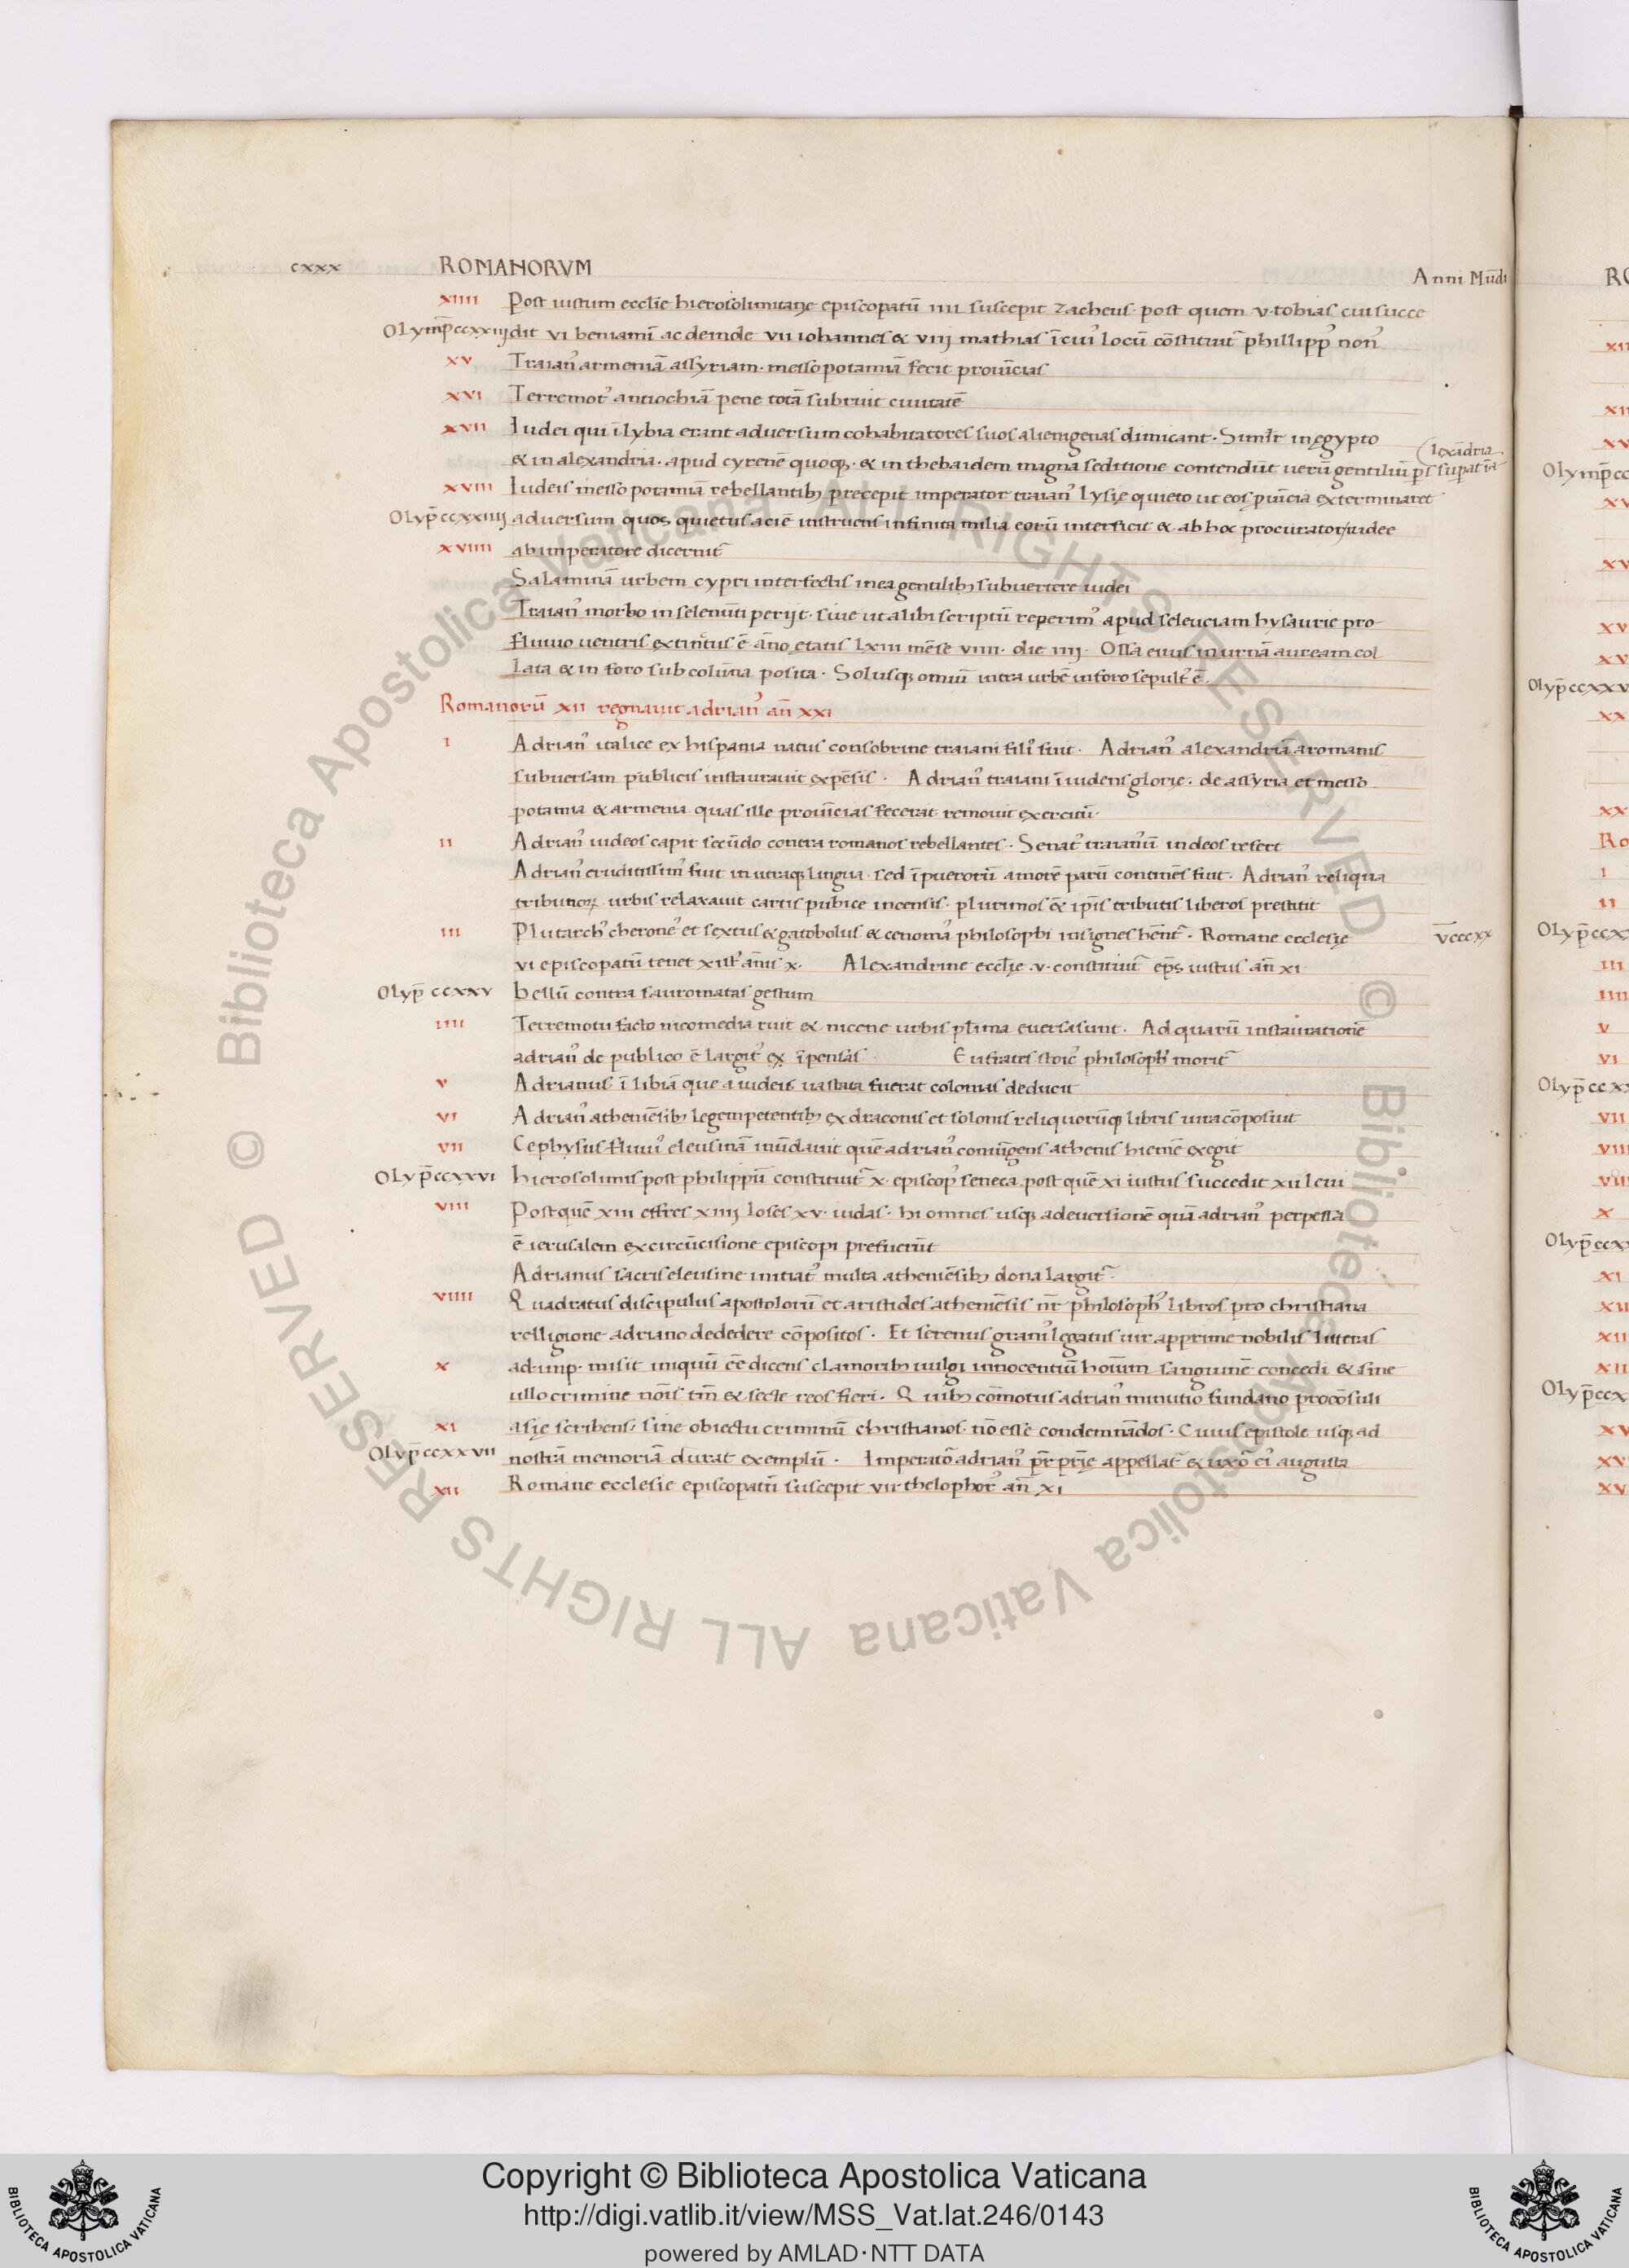 cxxx ROMANORVM Anni Mūdi
xiiii Post iustum eccl̄ie hierosolimitanę episcopatū iiii suscepit zacheus post quem v tobias cui succe
Olymp̄ ccxxiij dit vi beniamī ac deinde vii iohannes & viij mathias ī cui᾽ locū cōstituit᷑ phillipp᾽ non᾽
xv Traian᾽ armeniā assyriam messopotamiā fecit prouīcias
xvi Terremot᾽ antiochiā pene totā subruit ciuitatē
xvii Iudei qui ī lybia erant adversum cohabitatores suos alienigenas dimicant. Simlr̄ in ęgypto
& in alexandria. apud cyrenē quoqꝫ. & in thebaidem magna seditione contendūt uerū gentiliū ps̄ supat ī a
lexādria
xviii Iudeis messopotamiā rebellantibꝫ precepit imperator traian᾽ lysię quieto ut eos puīcia exterminaret
Olyp̄ ccxxiiij adversum quos quietus aciē instruens infinita milia eorū interficit & ab hoc procurator iudee
xviiii ab imperatore dicernit᷑
Salaminā urbem cypri interfectis in ea gentilibꝫ subvertere iudei
Traian᾽ morbo in selenūti perijt. siue ut alibi scriptū reperim᾽ apud seleuciam hysaurie pro-
fluuio uentris extinctus ē āno etatis lxiii mēse viiii. die iiij. Ossa eius in urnā auream col
lata & in foro sub colūna posita. Solusqꝫ omniū intra urbē in foro sepult᾽ ē.
Romanorū xii regnauit adrian᾽ an̄ xxi
i Adrian᾽ italice ex hispania natus consobrine traiani fili᾽ fuit. Adrian᾽ alexandriā a romanis
subuersam publicis instaurauit expēsis. Adrian᾽ traiani īuidens glorię. de assyria et messo
potamia & armenia quas ille prouīcias fecerat remouit exercitū.
ii Adrian᾽ iudeos capit secūdo contra romanos rebellantes. Senat᾽ traianū in deos refert
Adrian᾽ eruditissim᾽ fuit in utraqꝫ lingua. sed ī puerorū amorē parū continēs fuit. Adrian᾽ reliqua
tributorꝝ urbis relaxauit cartis pubice incensis. plurimos & ip̄is tributis liberos prestitit
iii Plutarch᾽ cherone᾽ et sextus & gatobolus & cenoma᾽ philosophi insignes hēnt᷑. Romane ecclesię v̄cccxx
vi episcopatū tenet xist᾽ an̄is x. Alexandrine eccl̄ie v. constituit᷑ ep̄s iustus an̄ xi
Olyp̄ ccxxv bellū contra sauromatas gestum
iiii Terremotu facto nicomedia ruit & nicene urbis pl̄ima eversa sunt. Ad quarū instaurationē
adrian᾽ de publico ē largit᾽ ex īpensas. Eufrates stoic᾽ philosoph᾽ morit᷑
v Adrianus ī libiā que a iudeis uastata fuerat colonias deducit
vi Adrian᾽ atheniēsibꝫ legem petentibꝫ ex draconis et solonis reliquorūqꝫ libris iura cōposuit
vii Cephysus fluui᾽ eleusinā inūdauit quē adrian᾽ coniūgens athenis hiemē exegit
Olyp̄ ccxxvi hierosolimis post philippū constituit᷑ x. episcop᾽ seneca post quē xi iustus succedit xii leui
viii Post quē xiii effres xiiij Ioses xv. iudas. hi omnes usqꝫ ad euersionē quā adrian᾽ perpessa
ē ierusalem ex circūcisione episcopi prefuerūt
Adrianus sacris eleusine initiat᾽ multa atheniēsibꝫ dona largit᷑.
viiii Quadratus discipulus apostolorū et aristides atheniēsis nr̄ philosoph᾽ libros pro christiana
relligione adriano dededere cōpositos. Et serenus grani᾽ legatus uir apprime nobilis litteras
x ad imp. misit iniquū eē dicens clamoribꝫ uulgi innocentiū hoīum sanguinē concedi & sine
ullo crimine noīs tm̄ & secte reos fieri. Quibꝫ cōmotus adrian᾽ minutio fundano procōsuli
xi asię scribens. sine obiectu criminū christianos nō esse condemnādos. Cuius epistole usqꝫ ad
Olyp̄ ccxxvii nostrā memoriā durat exemplū. Imperator adrian᾽ pr̄ pr̄ię appellat᷑ & uxor ei᾽ augusta
xii Romane ecclesie episcopatū suscepit vii thelophor᾽ an̄ xi
Copyright © Biblioteca Apostolica Vaticana
http://digi.vatlib.it/view/MSS_Vat.lat.246/0143
powered by AMLAD·NTT DATA
© Biblioteca Apostolica Vaticana ALL RIGHTS RESERVED
© Biblioteca Apostolica Vaticana ALL RIGHTS RESERVED
BIBLIOTECA APOSTOLICA VATICANA
BIBLIOTECA APOSTOLICA VATICANA